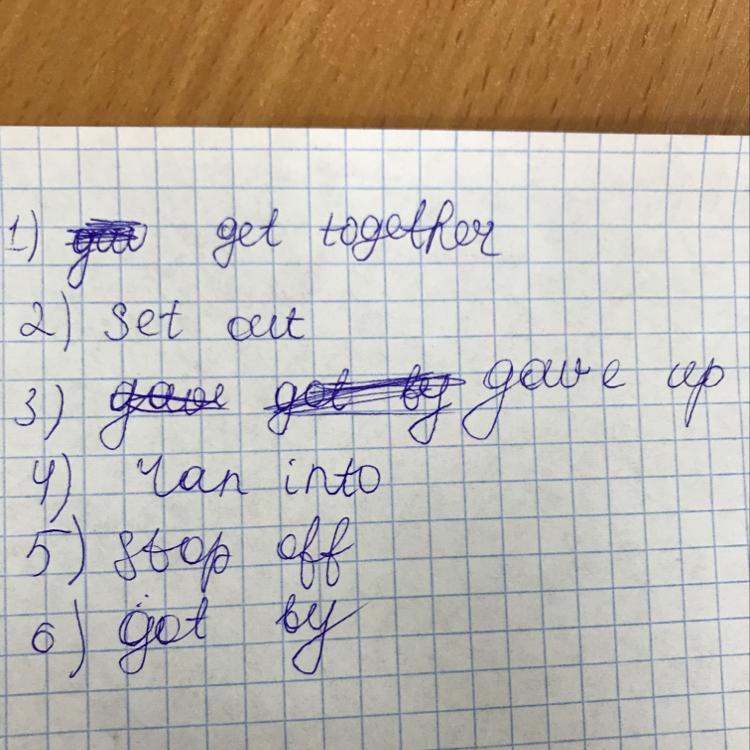 1) get together
2) set out
3) gave up
4) ran into
5) stop off
6) got by